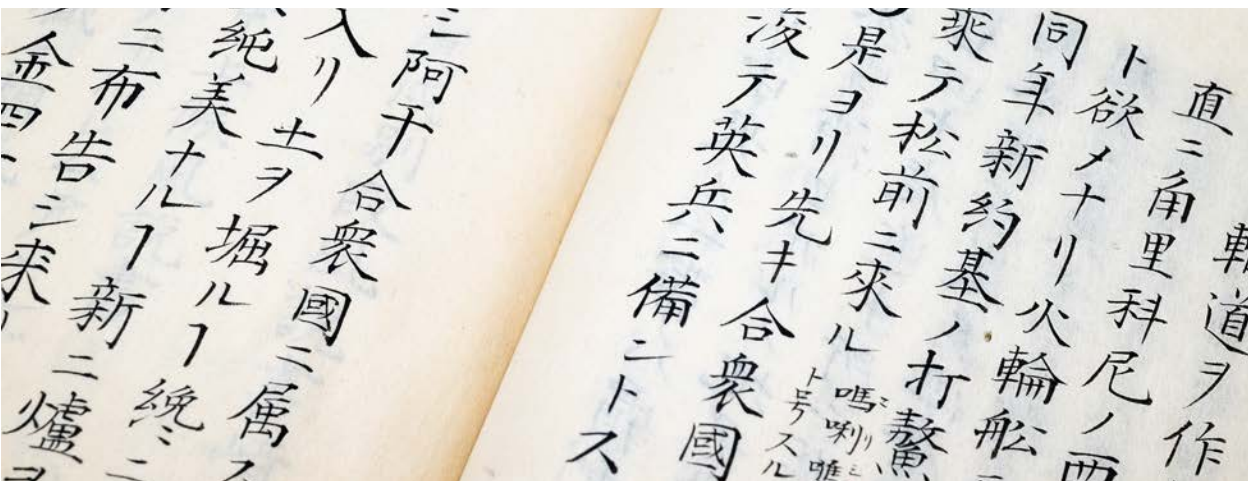 道ヲ作
直ニ角里科尼ノ西
ト欲メナリ火輪舩
同年新約基ノ打
乘テ松前ニ來ル
ト号スル
是ヨリ先キ合衆國
浚テ英兵ニ備ントス
阿干合衆國ニ属ス
入リ土ヲ堀ルヿ
純美ナルヿ新ニ爐ヲ
ニ布告シ来
金四